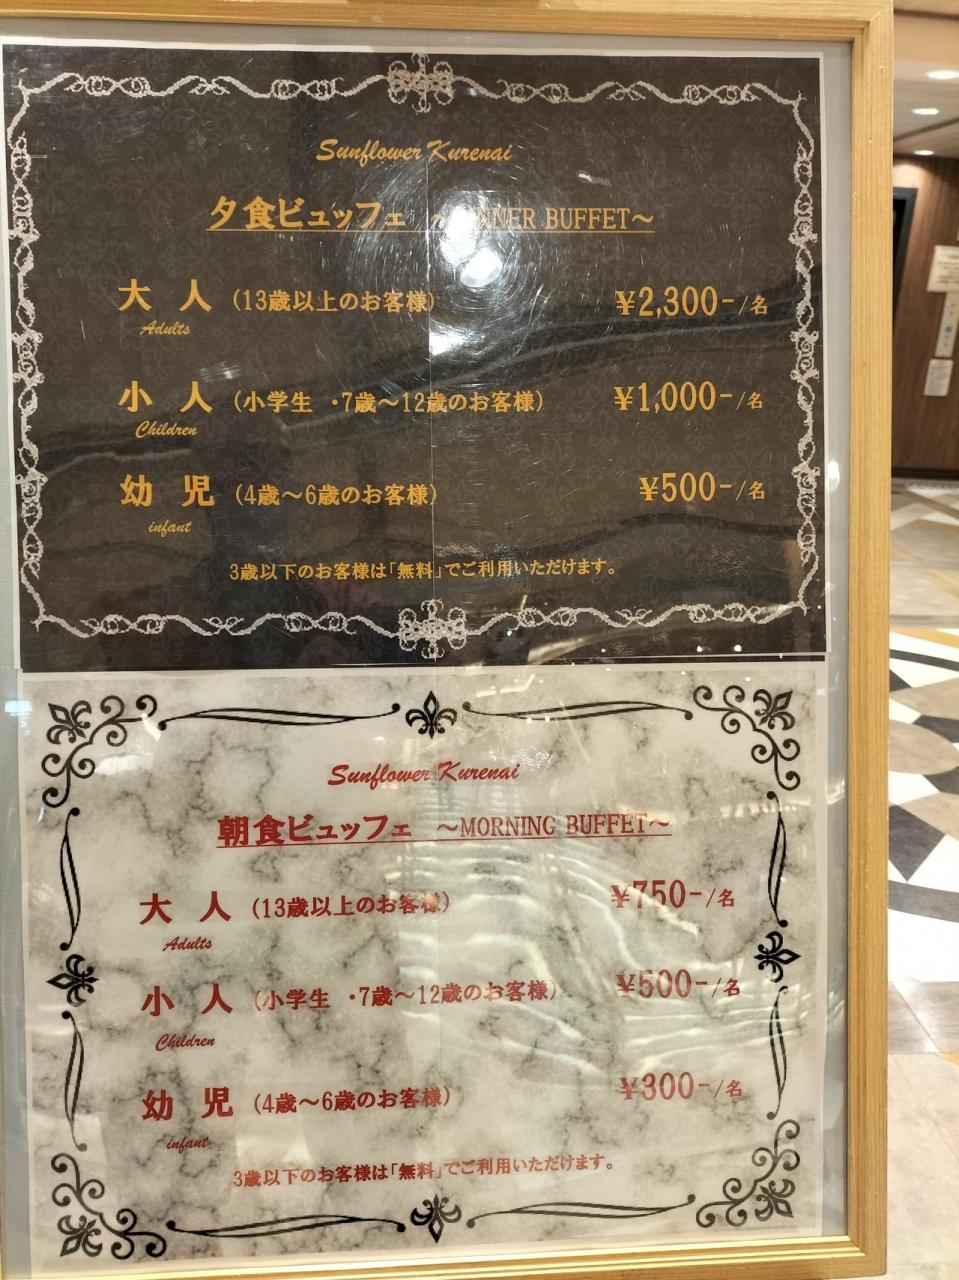 Sunflower Kurenai
夕食ビュッフェ ～DINNER BUFFET～
大人 (13歳以上のお客様) ¥2,300-/名
Adults
小人 (小学生 ・7歳～12歳のお客様) ¥1,000-/名
Children
幼児 (4歳～6歳のお客様) ¥500-/名
infant
3歳以下のお客様は「無料」でご利用いただけます。
Sunflower Kurenai
朝食ビュッフェ ～MORNING BUFFET～
大人 (13歳以上のお客様) ¥750-/名
Adults
小人 (小学生 ・7歳～12歳のお客様) ¥500-/名
Children
幼児 (4歳～6歳のお客様) ¥300-/名
infant
3歳以下のお客様は「無料」でご利用いただけます。